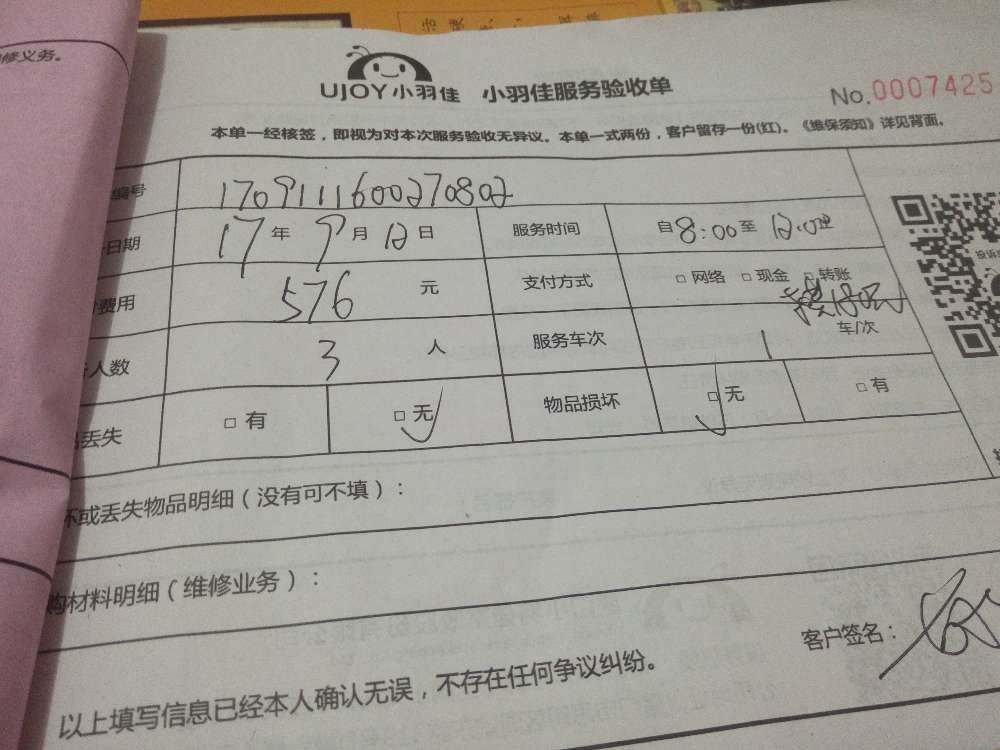 修义务。
UJOY小羽佳 小羽佳服务验收单
No.0007425
本单一经核签，即视为对本次服务验收无异议。本单一式两份，客户留存一份(红)。《维保须知》详见背面。
编号 1709111600270802
日期 17年9月12日 服务时间 自8:00至12:00
费用 576元 支付方式 □网络 □现金 □转账
人数 3人 服务车次 1 车/次
丢失 □有 □无 物品损坏 □无 □有
坏或丢失物品明细（没有可不填）：
购材料明细（维修业务）：
客户签名：
以上填写信息已经本人确认无误，不存在任何争议纠纷。